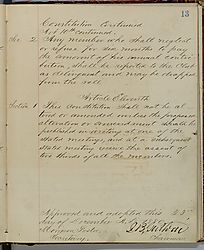 13
Constitution Continued
Art 10th Continued.
Sec 2 Any member who shall neglect
or refuse for six months to pay
the amount of his annual contri-
bution shall be reported by the Clerk
as delinquent and may be dropped
from the roll.
Article Eleventh
Section 1 This Constitution shall not be al-
tered or amended unless the proposed
alteration or amendment shall be
published in writing at one of the
stated meetings, and at a subsequent
stated meeting receive the assent of
two thirds of all the members.
Approved and adopted this 23d
day of December
Secretary. Chairman